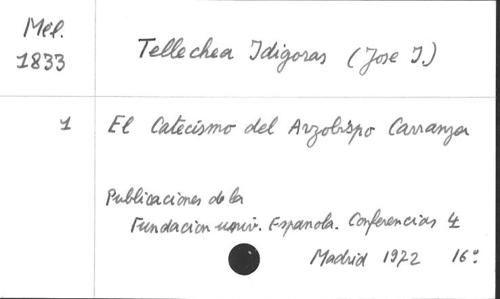 Mél. 1833
Tellechea Idigoras (Jose I.)
1 El Catecismo del Arzobispo Carranza
Publicaciones de la
Fundacion univ. Espanola. Conferencias 4
Madrid 1972 16°